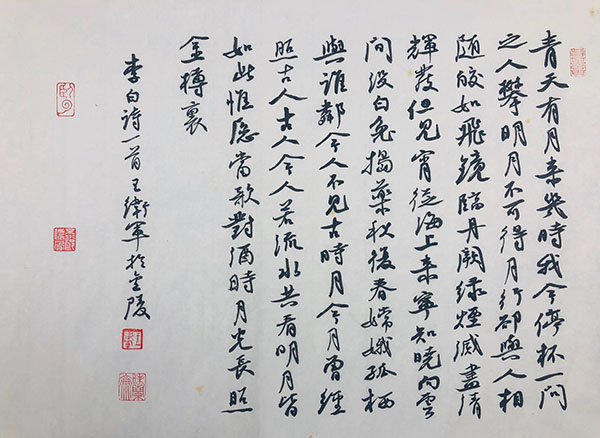 青天有月来幾時我今停杯一問
之人攀明月不可得月行卻與人相
随皎如飛鏡臨丹闕緑煙滅盡清
輝發但見宵從海上来寧知曉向雲
間没白兔搗藥秋復春嫦娥孤栖
與誰鄰今人不见古時月今月曾經
照古人古人今人若流水共看明月皆
如此惟愿當歌對酒時月光長照
金樽裏
李白诗一首王衛軍於金陵